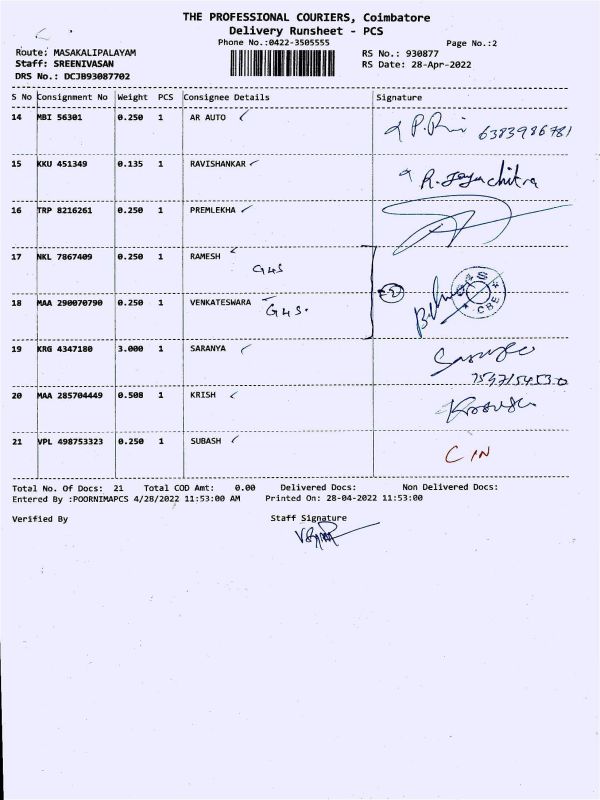 THE PROFESSIONAL COURIERS, Coimbatore
Delivery Runsheet - PCS
Phone No.:0422-3505555
Page No.:2
Route: MASAKALIPALAYAM
RS No.: 930877
Staff: SREENIVASAN
RS Date: 28-Apr-2022
DRS No.: DCJB93087702
S No Consignment No Weight PCS Consignee Details Signature
14 MBI 56301 0.250 1 AR AUTO 6383986781
15 KKU 451349 0.135 1 RAVISHANKAR R. Jayachitra
16 TRP 8216261 0.250 1 PREMLEKHA
17 NKL 7867409 0.250 1 RAMESH
G4S
18 MAA 290070790 0.250 1 VENKATESWARA
G4S.
CBE
19 KRG 4347180 3.000 1 SARANYA
20 MAA 285704449 0.508 1 KRISH
21 VPL 498753323 0.250 1 SUBASH CIN
Total No. Of Docs: 21 Total COD Amt: 0.00 Delivered Docs: Non Delivered Docs:
Entered By :POORNIMAPCS 4/28/2022 11:53:00 AM Printed On: 28-04-2022 11:53:00
Verified By Staff Signature